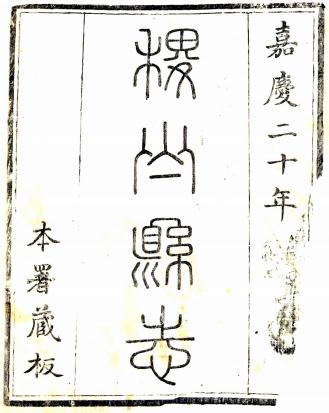 嘉慶二十年
稷山縣志
本署蔵板